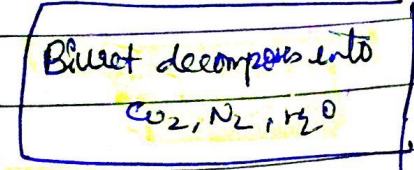 Biuret decomposes into
CO2, N2, H2O